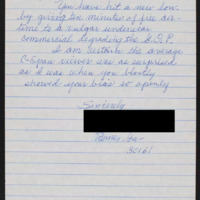 You have hit a new low
by giving ten minutes of free air-
time to a vulgar
commercial degrading the G.O.P.
I am certain the average
C-Span viewer was as surprised
as I was when you blatly
showed your bias so openly
Sincerely
Rome, Ga-
30161